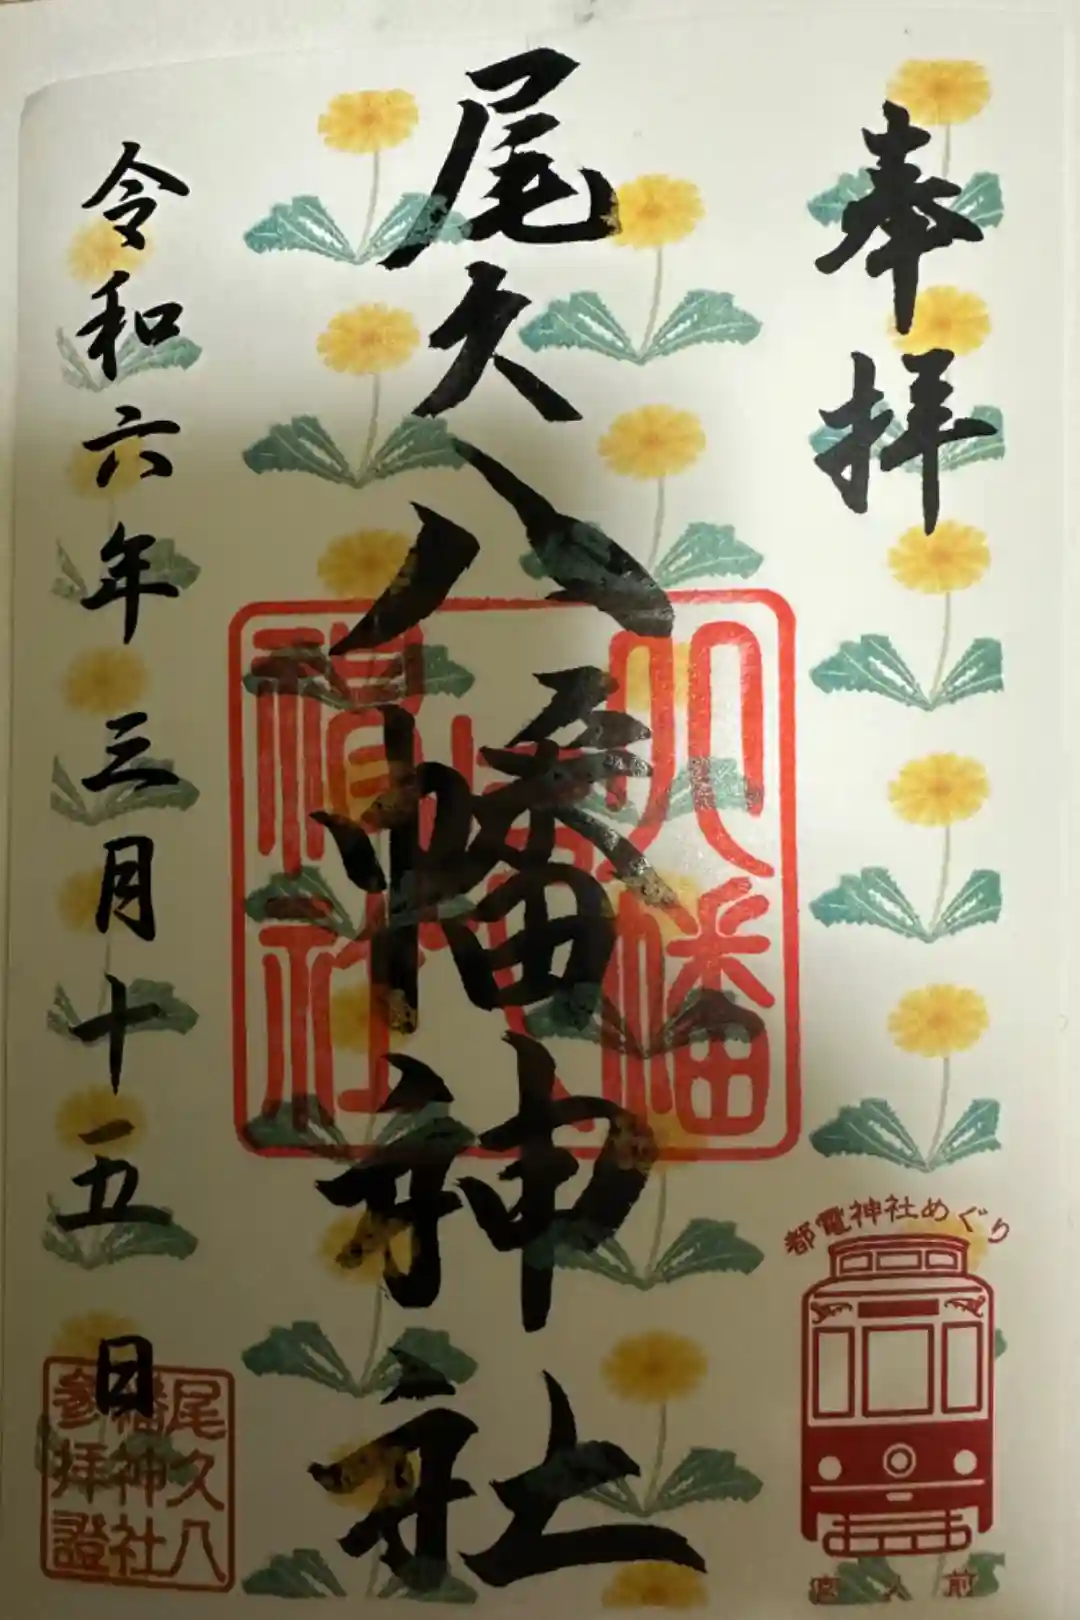 奉拝
都電神社めぐり
宮ノ前
尾久八幡神社
八幡
神社
令和六年三月十五日
尾久八
幡神社
参拝證